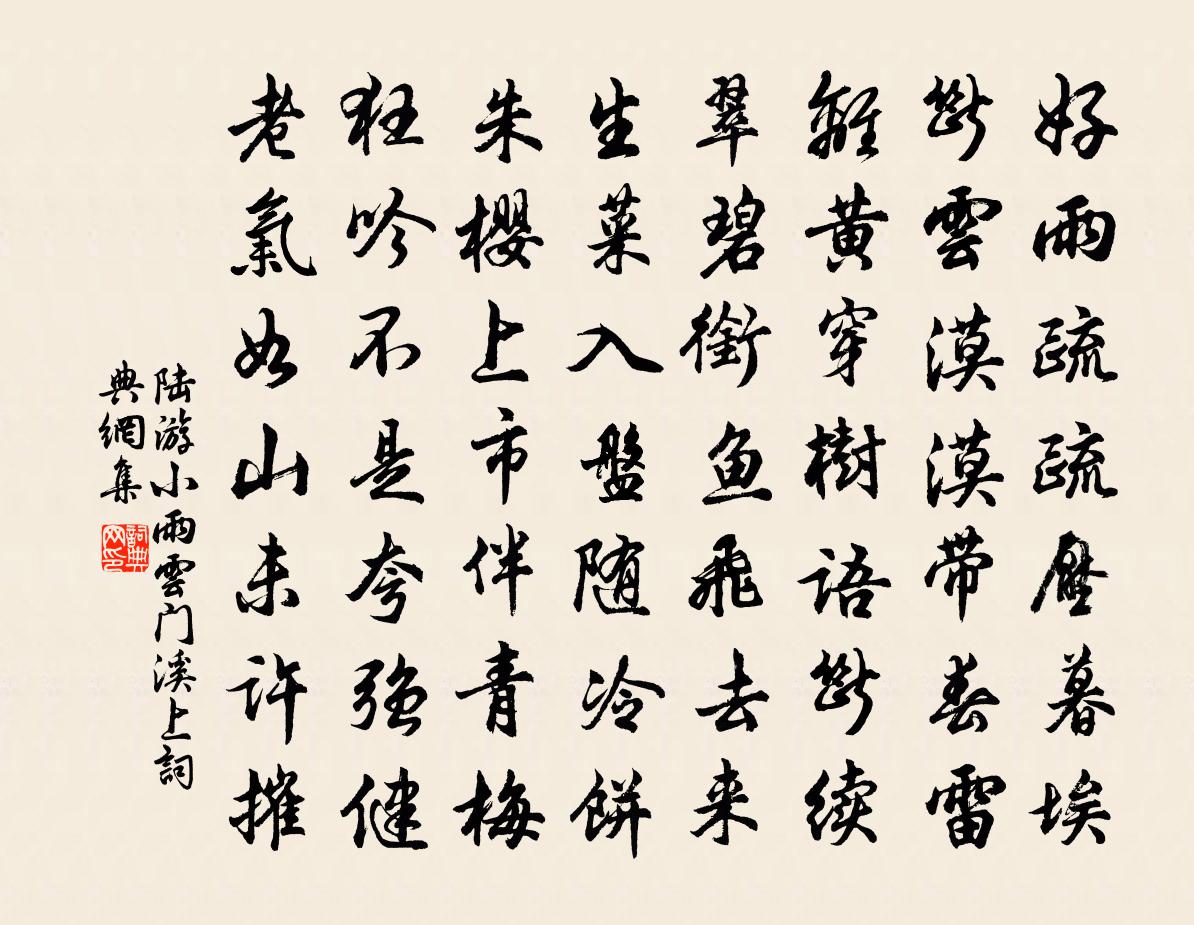 好雨疏疏壓暮埃
斷雲漠漠帶春雷
離黄穿樹語斷续
翠碧銜魚飛去来
生菜入盤随冷餅
朱櫻上市伴青梅
狂吟不是夸强健
老氣如山未許摧
陆游小雨雲门溪上詞
典網集
詞典网印